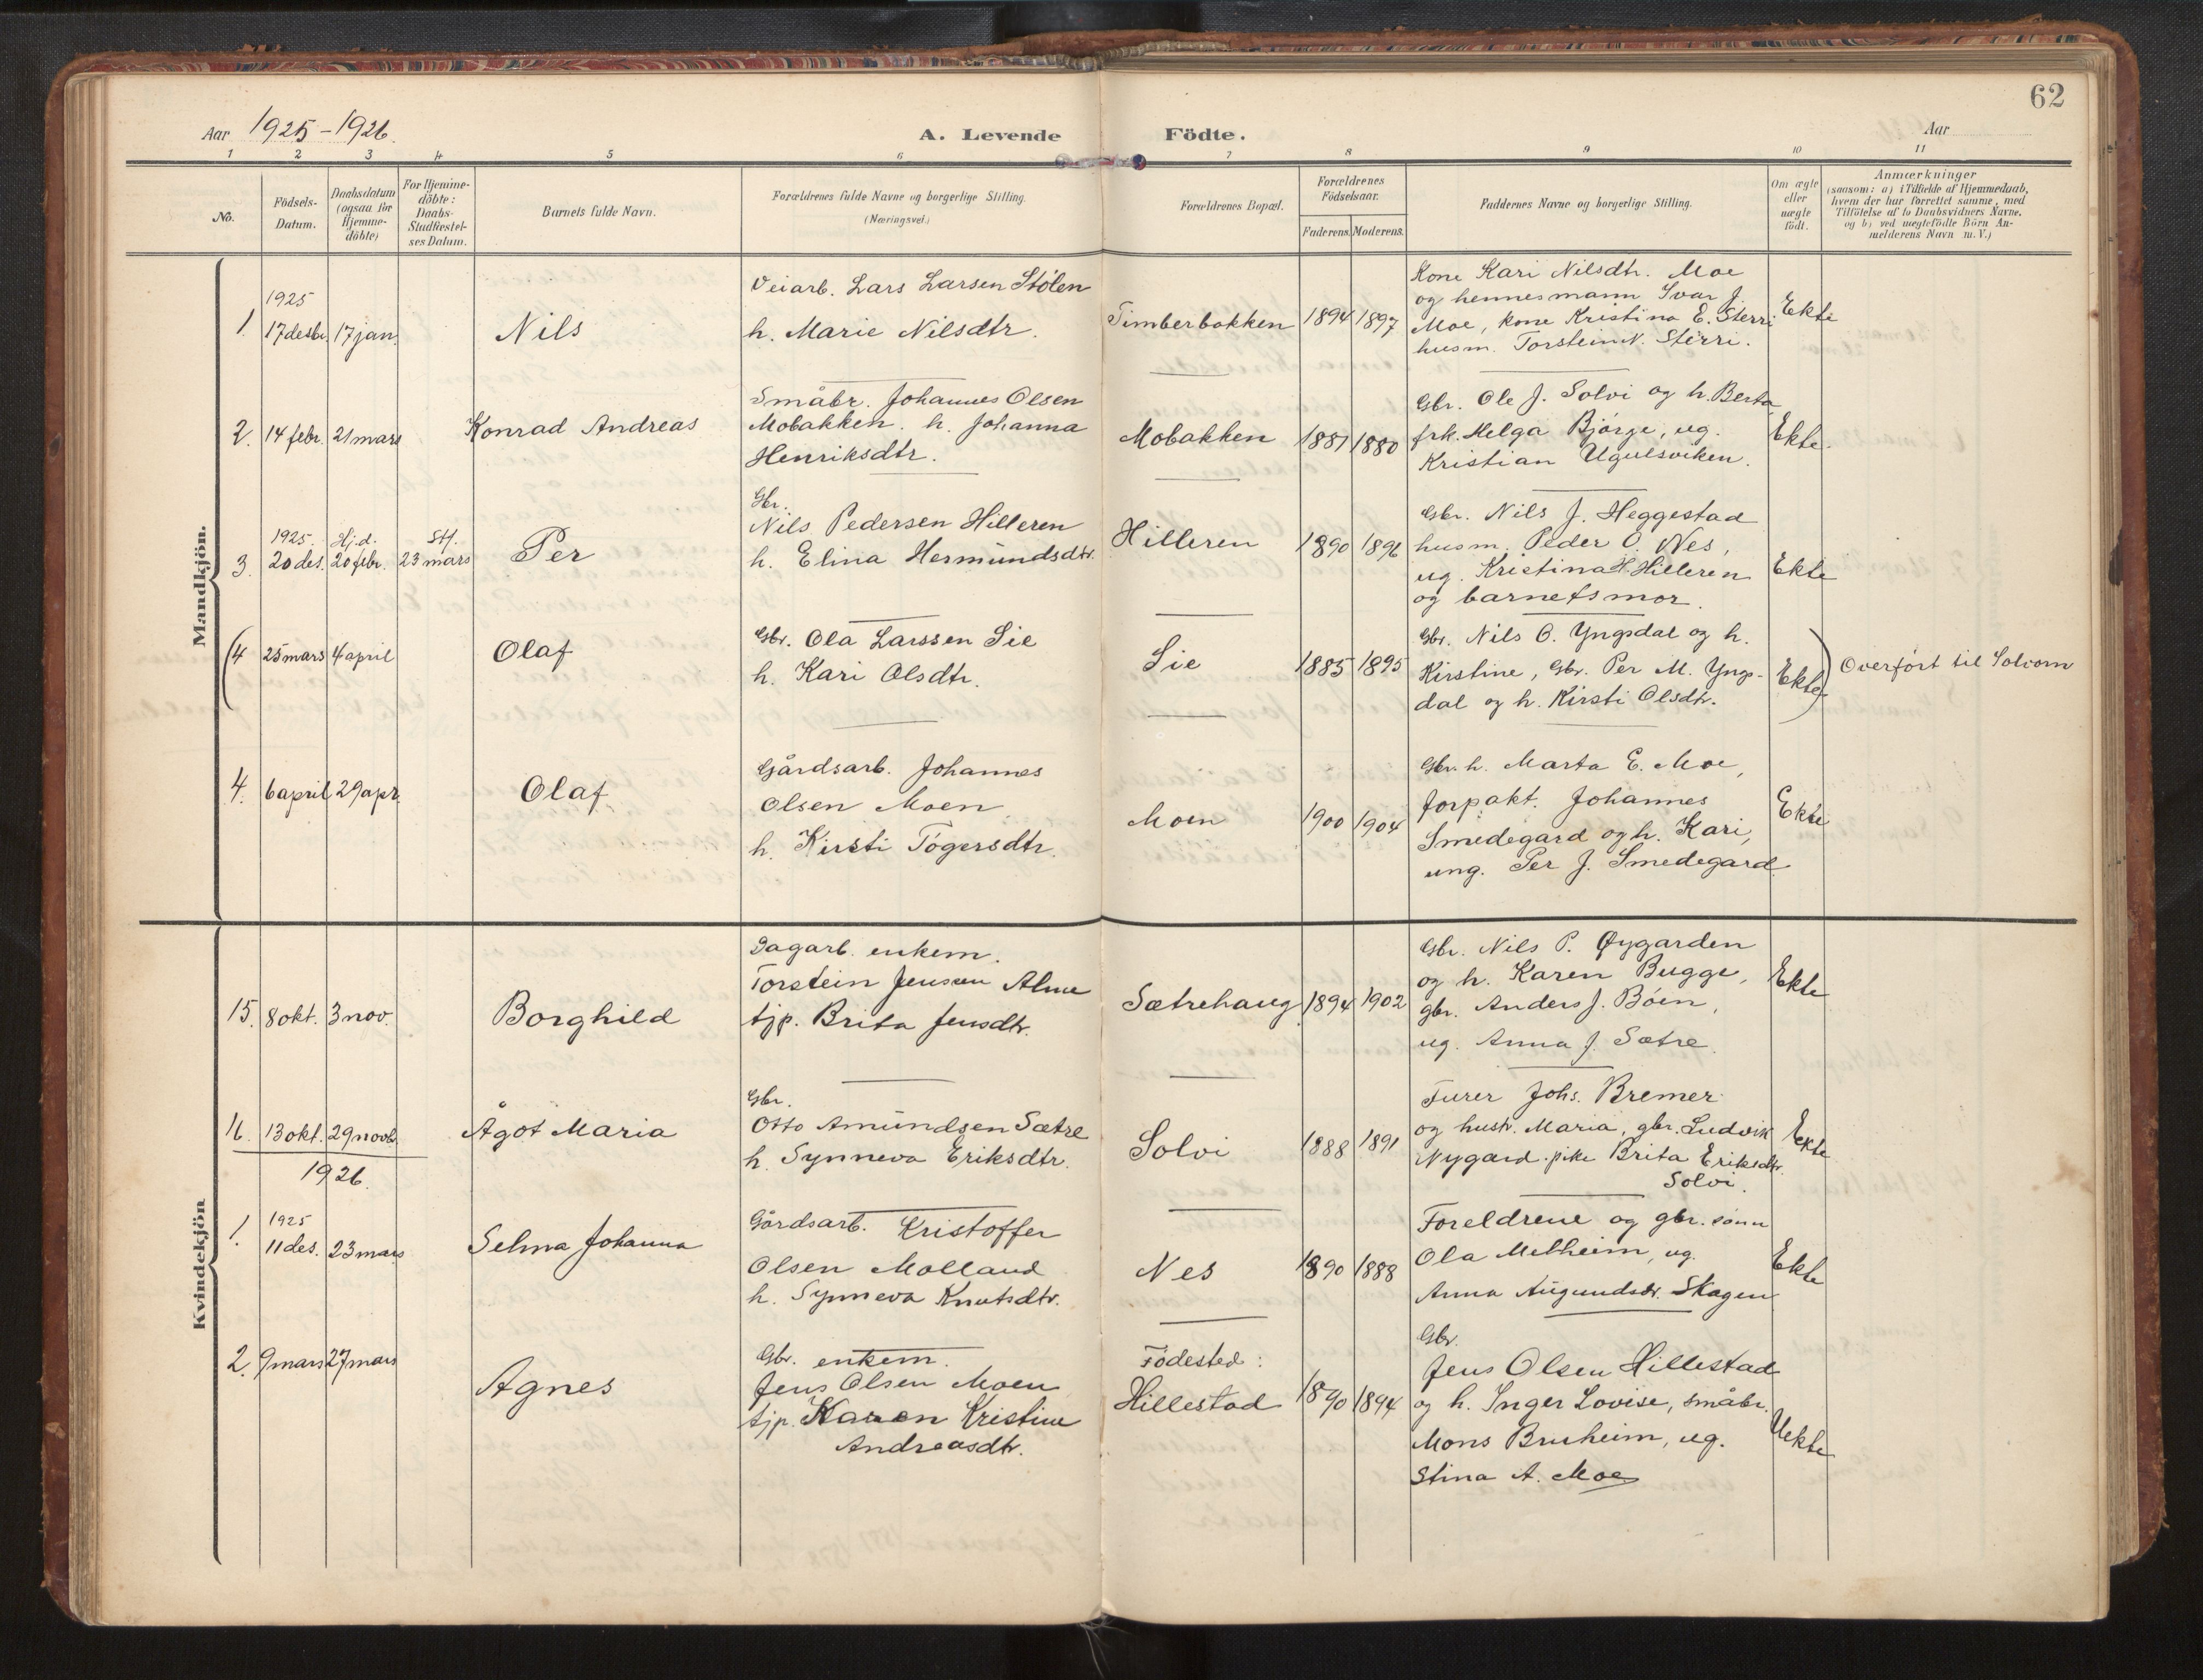 62
Aar 1925-1926.
A. Levende Födte.
Aar
1 2 3 4 5 6 7 8 9 10 11
No.
Födsels-
Datum.
Daabsdatum
(ogsaa for
Hjemme-
döbte)
For Hjemme-
döbte:
Daabs-
Stadfæstel-
ses Datum.
Barnets fulde Navn.
Forældrenes fulde Navne og borgerlige Stilling.
(Næringsvei.)
Forældrenes Bopæl.
Forældrenes
Födselsaar.
Faderens. Moderens.
Faddernes Navne og borgerlige Stilling.
Om ægte
eller
uægte
födt.
Anmærkninger
(saasom: a) i Tilfælde af Hjemmedaab,
hvem der har forrettet samme, med
Tilföielse af to Daabsvidners Navne.
og b) ved uægtefödte Börn An-
melderens Navn m. V.)
Mandkjön.
1925
1. 17 desbr. 17 jan. Nils
Veiarb. Lars Larsen Stölen
h. Marie Nilsdtr.
Timberbakken 1894 1897
Kone Kari Nilsdtr. Moe
og hennes mann Ivar J.
Moe, kone Kristina E. Sterri
husm. Torstein N. Sterri.
Ekte
2. 14 febr. 21 mars Konrad Andreas
Småbr. Johannes Olsen
Mobakken. h. Johanna
Henriksdtr.
Mobakken 1881 1880
Gbr. Ole J. Solvi og h. Berta
frk. Helga Bjørge, ug.
Kristian Ugulsviken.
Ekte.
1925. Hj.d. Stf.
3. 20 des. 20 febr. 23 mars Per
Gbr.
Nils Pedersen Hilleren
h. Elina Hermundsdtr.
Hilleren 1890 1896
Gbr. Nils J. Heggestad
husm. Peder O. Nes,
ug. Kristina H. Hilleren
og barnets mor.
Ekte
(4 25 mars 4 april Olaf
Gbr. Ola Larssen Lie
h. Kari Olsdtr.
Lie 1885 1895
Gbr. Nils O. Yngsdal og h.
Kirstine, Gbr. Per M. Yngs-
dal og h. Kirsti Olsdtr.
Ekte)
Overført til Solvorn
4. 6 april 29 apr. Olaf
Gårdsarb. Johannes
Olsen Moen
h. Kirsti Tögersdtr.
Moen 1900 1904
Gbr. h. Marta E. Moe,
forpakt. Johannes
Smedegard og h. Kari,
ung. Per J. Smedegard
Ekte
Kvindekjön
15. 8 okt. 3 nov. Borghild
Dagarb. enkem.
Torstein Jensen Alme
tjp. Brita Jensdtr.
Sætrehaug 1894 1902
Gbr. Nils P. Øygarden
og h. Karen Bugge,
gbr. Anders J. Böen,
ug. Anna J. Sætre.
Ekte
16. 13 okt. 29 novb. Ågot Maria
Gbr.
Otto Amundsen Sætre
h. Synneva Eriksdtr.
Solvi 1888 1891
Furer Johs. Bremer
og hustr. Maria, gbr. Ludvik
Nygard. pike Brita Eriksdtr.
Solvi.
Ekte
1926.
1925
1. 11 des. 23 mars Selma Johanna
Gårdsarb. Kristoffer
Olsen Molland
h. Synneva Knutsdtr.
Nes 1890 1888
Foreldrene og gbr. sønn
Ola Melheim, ug.
Anna Augundsdr. Skagen
Ekte
2. 9 mars 27 mars Agnes
Gbr. enkem.
Jens Olsen Moen
tjp. Karen Kristine
Andreasdtr.
Födested:
Hillestad 1890 1894
Gbr.
Jens Olsen Hillestad
og h. Inger Lovise, småbr.
Mons Bruheim, ug.
Stina A. Moe
Uekte